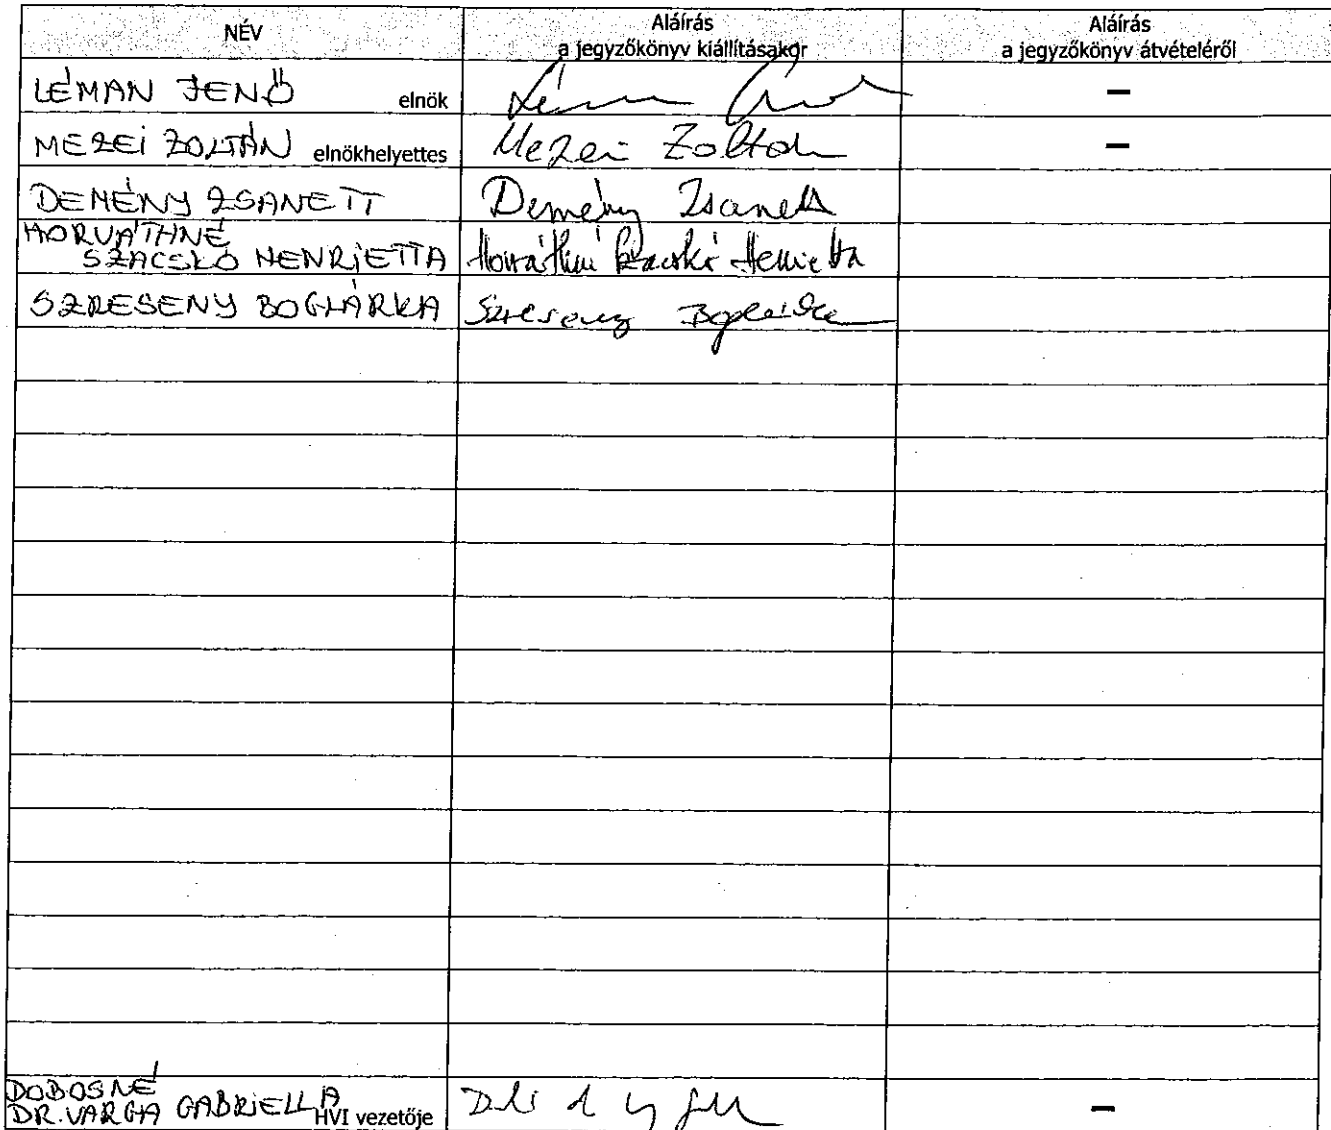 NÉV
Aláírás
a jegyzőkönyv kiállításakor
Aláírás
a jegyzőkönyv átvételéről
LÉMAN JENŐ elnök
–
MEZEI ZOLTÁN elnökhelyettes Mezei Zoltán –
DEMÉNY ZSANETT Demény Zsanett
HORVÁTHNÉ
SZACSKÓ HENRIETTA Horváthné Szacskó Henrietta
SZRESENY BOGLÁRKA Szreseny Boglárka
DOBOSNÉ
DR. VARGA GABRIELLA HVI vezetője –